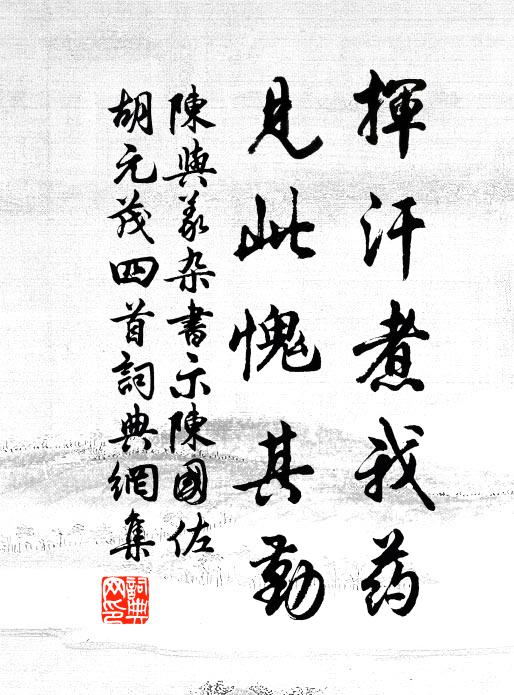 揮汗煮我药
見此愧其勤
陳與義杂書示陳國佐
胡元茂四首詞典網集
詞典
网印